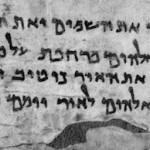 את השמים ואת
אלהים מרחפת על
את האור כי טוב
אלהים לאור יומם